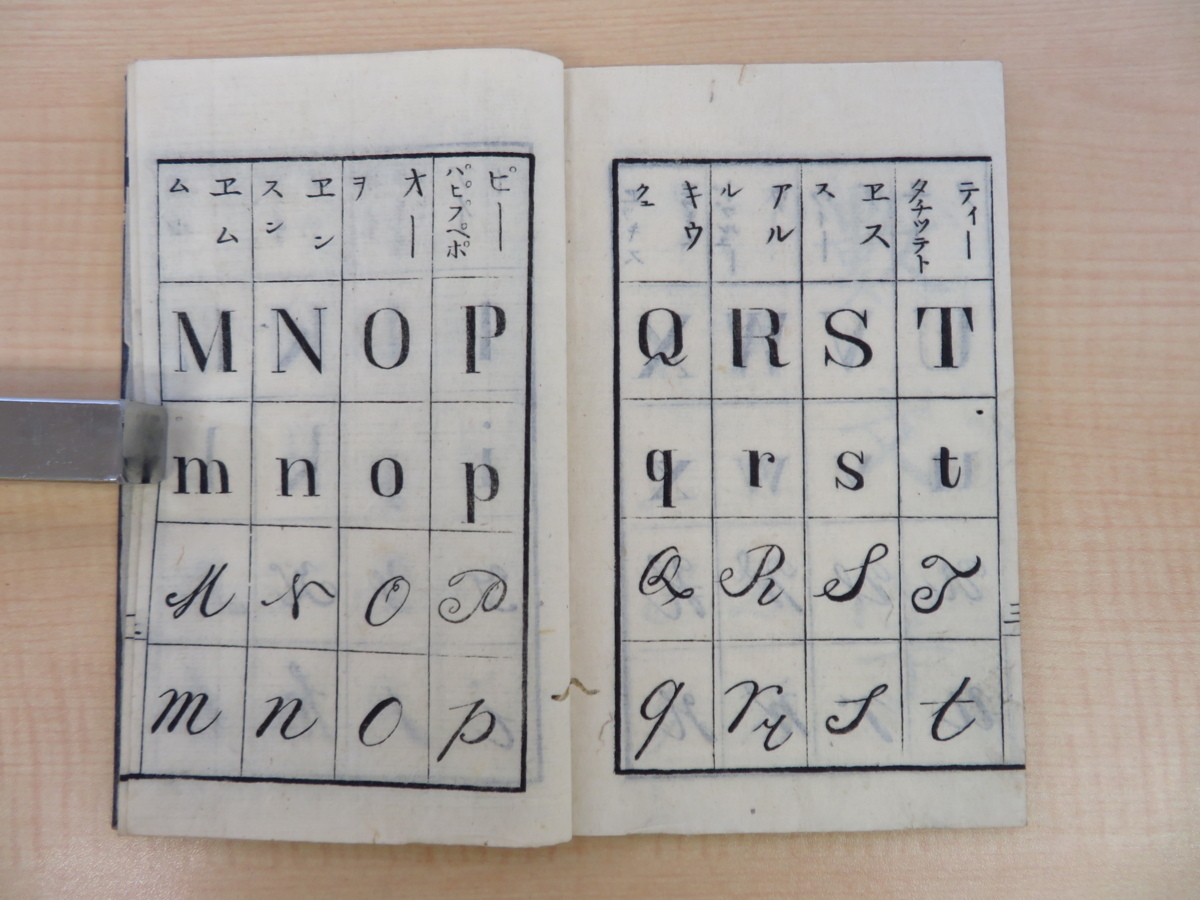 ヱム ム
ヱン スン
オー ヲ
ピー パピプペポ
M N O P
m n o p
M N O P
m n o p
二
キウ
アル ル
ヱス ス
ティー タチツテト
Q R S T
q r s t
Q R S T
q r s t
三